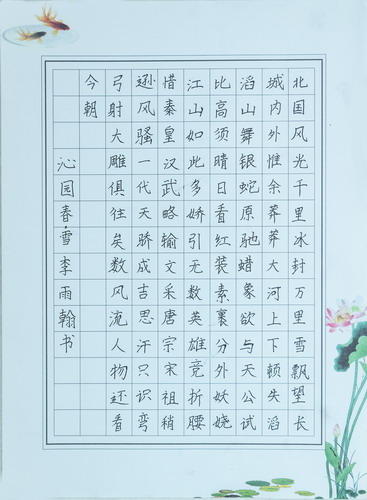 北国风光千里冰封万里雪飘望长
城内外惟余莽莽大河上下顿失滔
滔山舞银蛇原驰蜡象欲与天公试
比高须晴日看红装素裹分外妖娆
江山如此多娇引无数英雄竞折腰
惜秦皇汉武略输文采唐宗宋祖稍
逊风骚一代天骄成吉思汗只识弯
弓射大雕俱往矣数风流人物还看
今朝
沁园春·雪李雨翰书